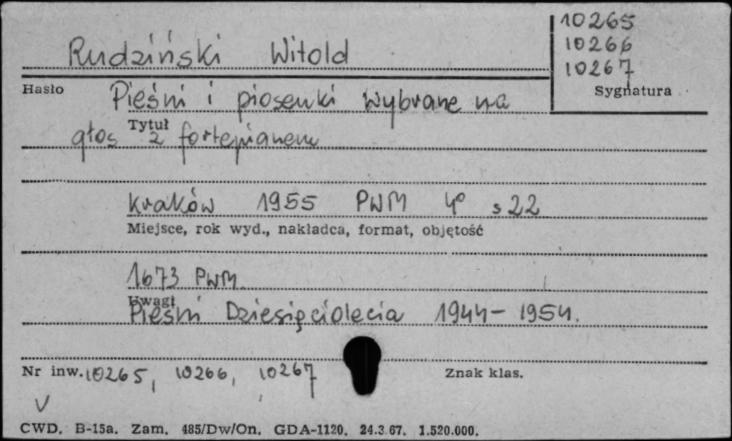 10265
10266
Rudziński Witold
10267
Hasło
Sygnatura
Pieśni i piosenki wybrane na
Tytuł
głos z fortepianem
Kraków 1955 PWM 4° s 22
Miejsce, rok wyd., nakładca, format, objętość
1673 PWM
Uwagi
Pieśni Dziesięciolecia 1944 - 1954.
Nr inw. 10265, 10266, 10267
Znak klas.
V
CWD. B-15a. Zam. 485/Dw/On. GDA-1120. 24.3.67. 1.520.000.